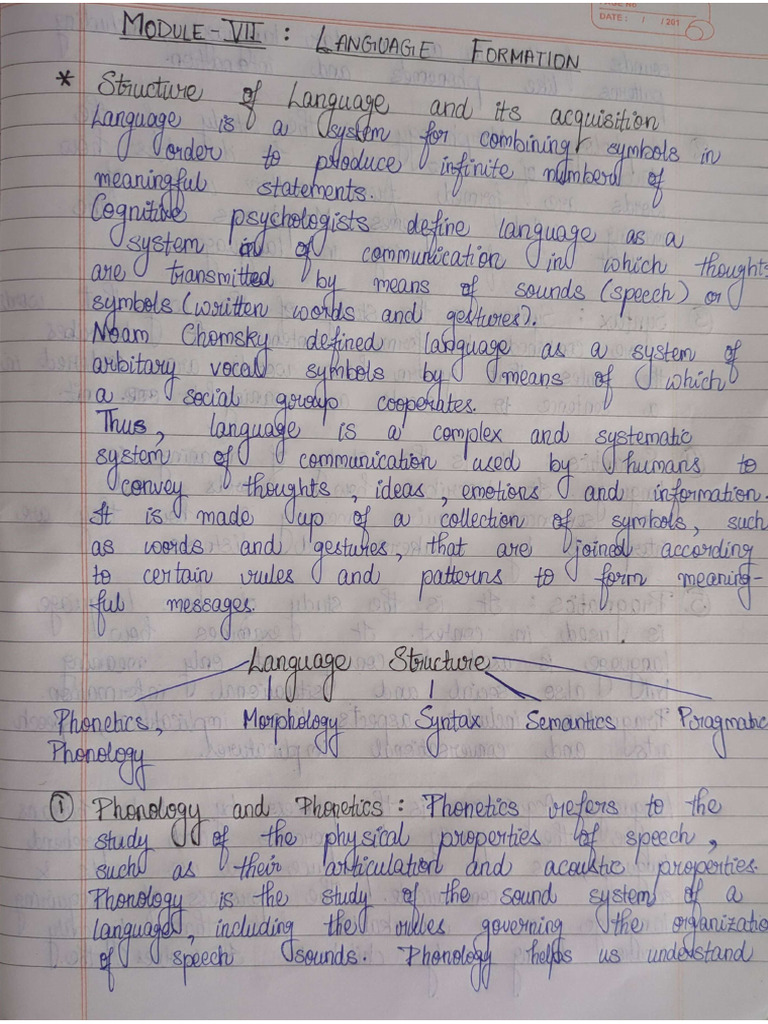 DATE : / / 201
MODULE - VII : LANGUAGE FORMATION
* Structure of Language and its acquisition
Language is a system for combining symbols in
order to produce infinite numbers of
meaningful statements.
Cognitive psychologists define language as a
system of communication in which thoughts
are transmitted by means of sounds (speech) or
symbols (written words and gestures).
Noam Chomsky defined language as a system of
arbitary vocal symbols by means of which
a social group cooperates.
Thus, language is a complex and systematic
system of communication used by humans to
convey thoughts, ideas, emotions and information.
It is made up of a collection of symbols, such
as words and gestures, that are joined according
to certain rules and patterns to form meaning-
ful messages.
Language Structure
Phonetics, Morphology Syntax Semantics Pragmatic
Phonology
① Phonology and Phonetics : Phonetics refers to the
study of the physical properties of speech,
such as their articulation and acoustic properties.
Phonology is the study of the sound system of a
language, including the rules governing the organizatio
of speech sounds. Phonology helps us understand